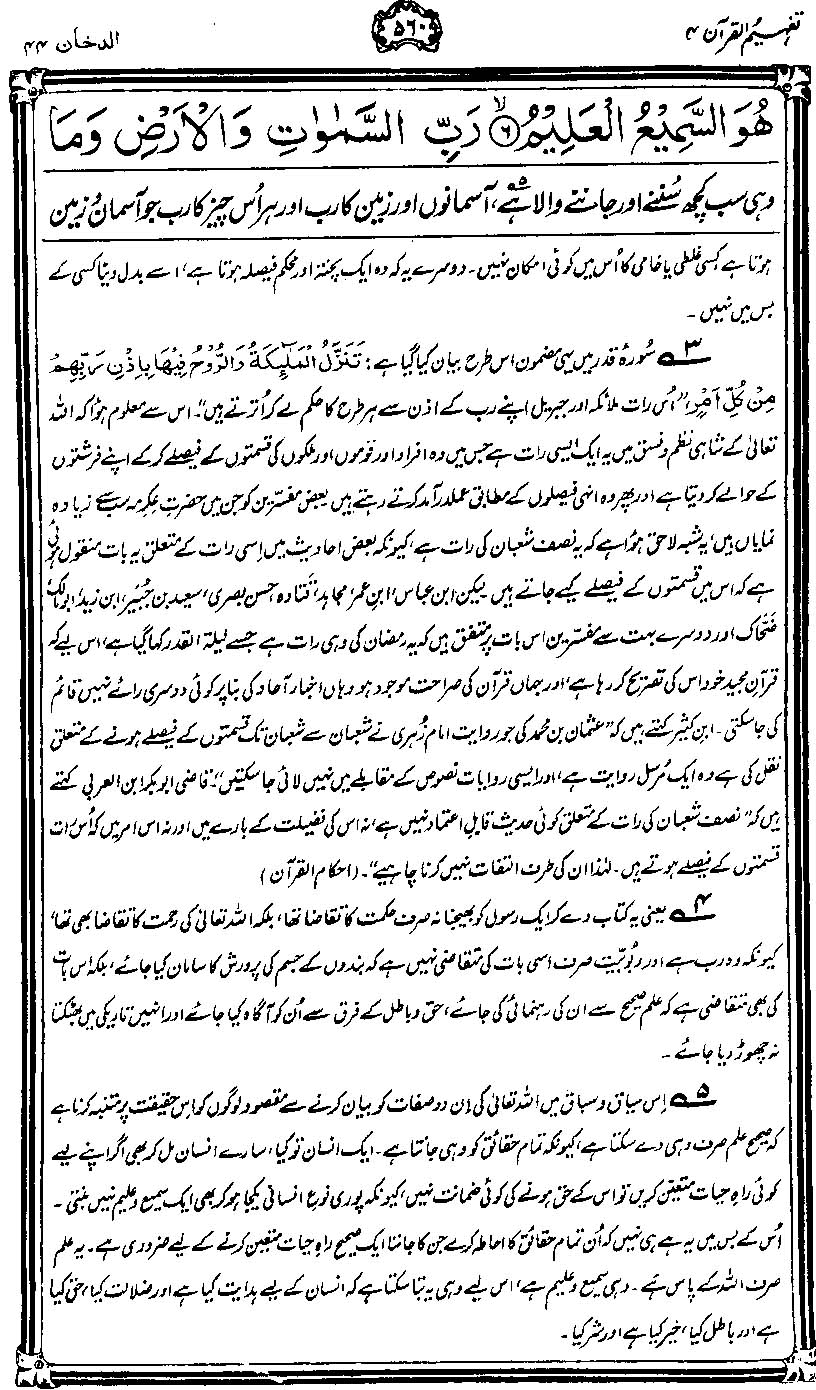 تفہیم القرآن ۴
۵۶۰
الدخان ۴۴
هُوَ السَّمِيْعُ الْعَلِيْمُ ۙ۝۶ رَبِّ السَّمٰوٰتِ وَالْاَرْضِ وَمَا
وہی سب کچھ سُننے اور جاننے والا ہے،۵ آسمانوں اور زمین کا رب اور ہر اُس چیز کا رب جو آسمان و زمین
ہوتا ہے کسی غلطی یا خامی کا اُس میں کوئی امکان نہیں۔ دوسرے یہ کہ وہ ایک پختہ اور محکم فیصلہ ہوتا ہے، اسے بدل دینا کسی کے
بس میں نہیں۔
۳؎ سُورۂ قدر میں یہی مضمون اس طرح بیان کیا گیا ہے: تَنَزَّلُ الْمَلٰٓئِكَةُ وَالرُّوْحُ فِيْهَا بِاِذْنِ رَبِّهِمْ
مِنْ كُلِّ اَمْرٍ، ”اُس رات ملائکہ اور جبریل اپنے رب کے اذن سے ہر طرح کا حکم لے کر اُترتے ہیں“۔ اس سے معلوم ہوا کہ اللہ
تعالیٰ کے شاہی نظم و نسق میں یہ ایک ایسی رات ہے جس میں وہ افراد اور قوموں اور ملکوں کی قسمتوں کے فیصلے کر کے اپنے فرشتوں
کے حوالے کر دیتا ہے اور پھر وہ انہی فیصلوں کے مطابق عملدرآمد کرتے رہتے ہیں۔ بعض مفسرین کو جن میں حضرت عکرِمہ سب سے زیادہ
نمایاں ہیں، یہ شبہ لاحق ہوا ہے کہ یہ نصف شعبان کی رات ہے، کیونکہ بعض احادیث میں اِسی رات کے متعلق یہ بات منقول ہوئی
ہے کہ اس میں قسمتوں کے فیصلے کیے جاتے ہیں۔ لیکن ابن عباس، ابنِ عمر، مجاہد، قَتادہ، حسن بصری، سعید بن جُبَیر، ابن زید، ابومالک،
ضَحّاک اور دوسرے بہت سے مفسرین اس بات پر متفق ہیں کہ یہ رمضان کی وہی رات ہے جسے لیلۃ القدر کہا گیا ہے، اس لیے کہ
قرآنِ مجید خود اس کی تصریح کر رہا ہے، اور جہاں قرآن کی صراحت موجود ہو وہاں اخبار آحاد کی بنا پر کوئی دوسری رائے نہیں قائم
کی جا سکتی۔ ابن کثیر کہتے ہیں کہ ”عثمان بن محمد کی جو روایت امام زُہری نے شعبان سے شعبان تک قسمتوں کے فیصلے ہونے کے متعلق
نقل کی ہے وہ ایک مُرسل روایت ہے، اور ایسی روایات نصوص کے مقابلے میں نہیں لائی جا سکتیں“۔ قاضی ابوبکر ابن العربی کہتے
ہیں کہ ”نصف شعبان کی رات کے متعلق کوئی حدیث قابلِ اعتماد نہیں ہے، نہ اس کی فضیلت کے بارے میں اور نہ اس امر میں کہ اُس رات
قسمتوں کے فیصلے ہوتے ہیں۔ لہٰذا ان کی طرف التفات نہیں کرنا چاہیے“۔ (احکام القرآن)
۴؎ یعنی یہ کتاب دے کر ایک رسول کو بھیجنا نہ صرف حکمت کا تقاضا تھا، بلکہ اللہ تعالیٰ کی رحمت کا تقاضا بھی تھا،
کیونکہ وہ رب ہے اور ربوبیّت صرف اسی بات کی متقاضی نہیں ہے کہ بندوں کے جسم کی پرورش کا سامان کیا جائے، بلکہ اس بات
کی بھی متقاضی ہے کہ علم صحیح سے ان کی رہنمائی کی جائے، حق و باطل کے فرق سے اُن کو آگاہ کیا جائے اور انہیں تاریکی میں بھٹکتا
نہ چھوڑ دیا جائے۔
۵؎ اِس سیاق و سباق میں اللہ تعالیٰ کی اِن دو صفات کو بیان کرنے سے مقصود لوگوں کو اِس حقیقت پر متنبہ کرنا ہے
کہ صحیح علم صرف وہی دے سکتا ہے، کیونکہ تمام حقائق کو وہی جانتا ہے۔ ایک انسان تو کیا، سارے انسان مل کر بھی اگر اپنے لیے
کوئی راہِ حیات متعین کریں تو اس کے حق ہونے کی کوئی ضمانت نہیں، کیونکہ پوری نوعِ انسانی یکجا ہو کر بھی ایک سمیع و علیم نہیں بنتی۔
اُس کے بس میں یہ ہے ہی نہیں کہ اُن تمام حقائق کا احاطہ کرے جن کا جاننا ایک صحیح راہِ حیات متعین کرنے کے لیے ضروری ہے۔ یہ علم
صرف اللہ کے پاس ہے۔ وہی سمیع و علیم ہے، اس لیے وہی یہ بتا سکتا ہے کہ انسان کے لیے ہدایت کیا ہے اور ضلالت کیا، حق کیا
ہے اور باطل کیا، خیر کیا ہے اور شر کیا۔